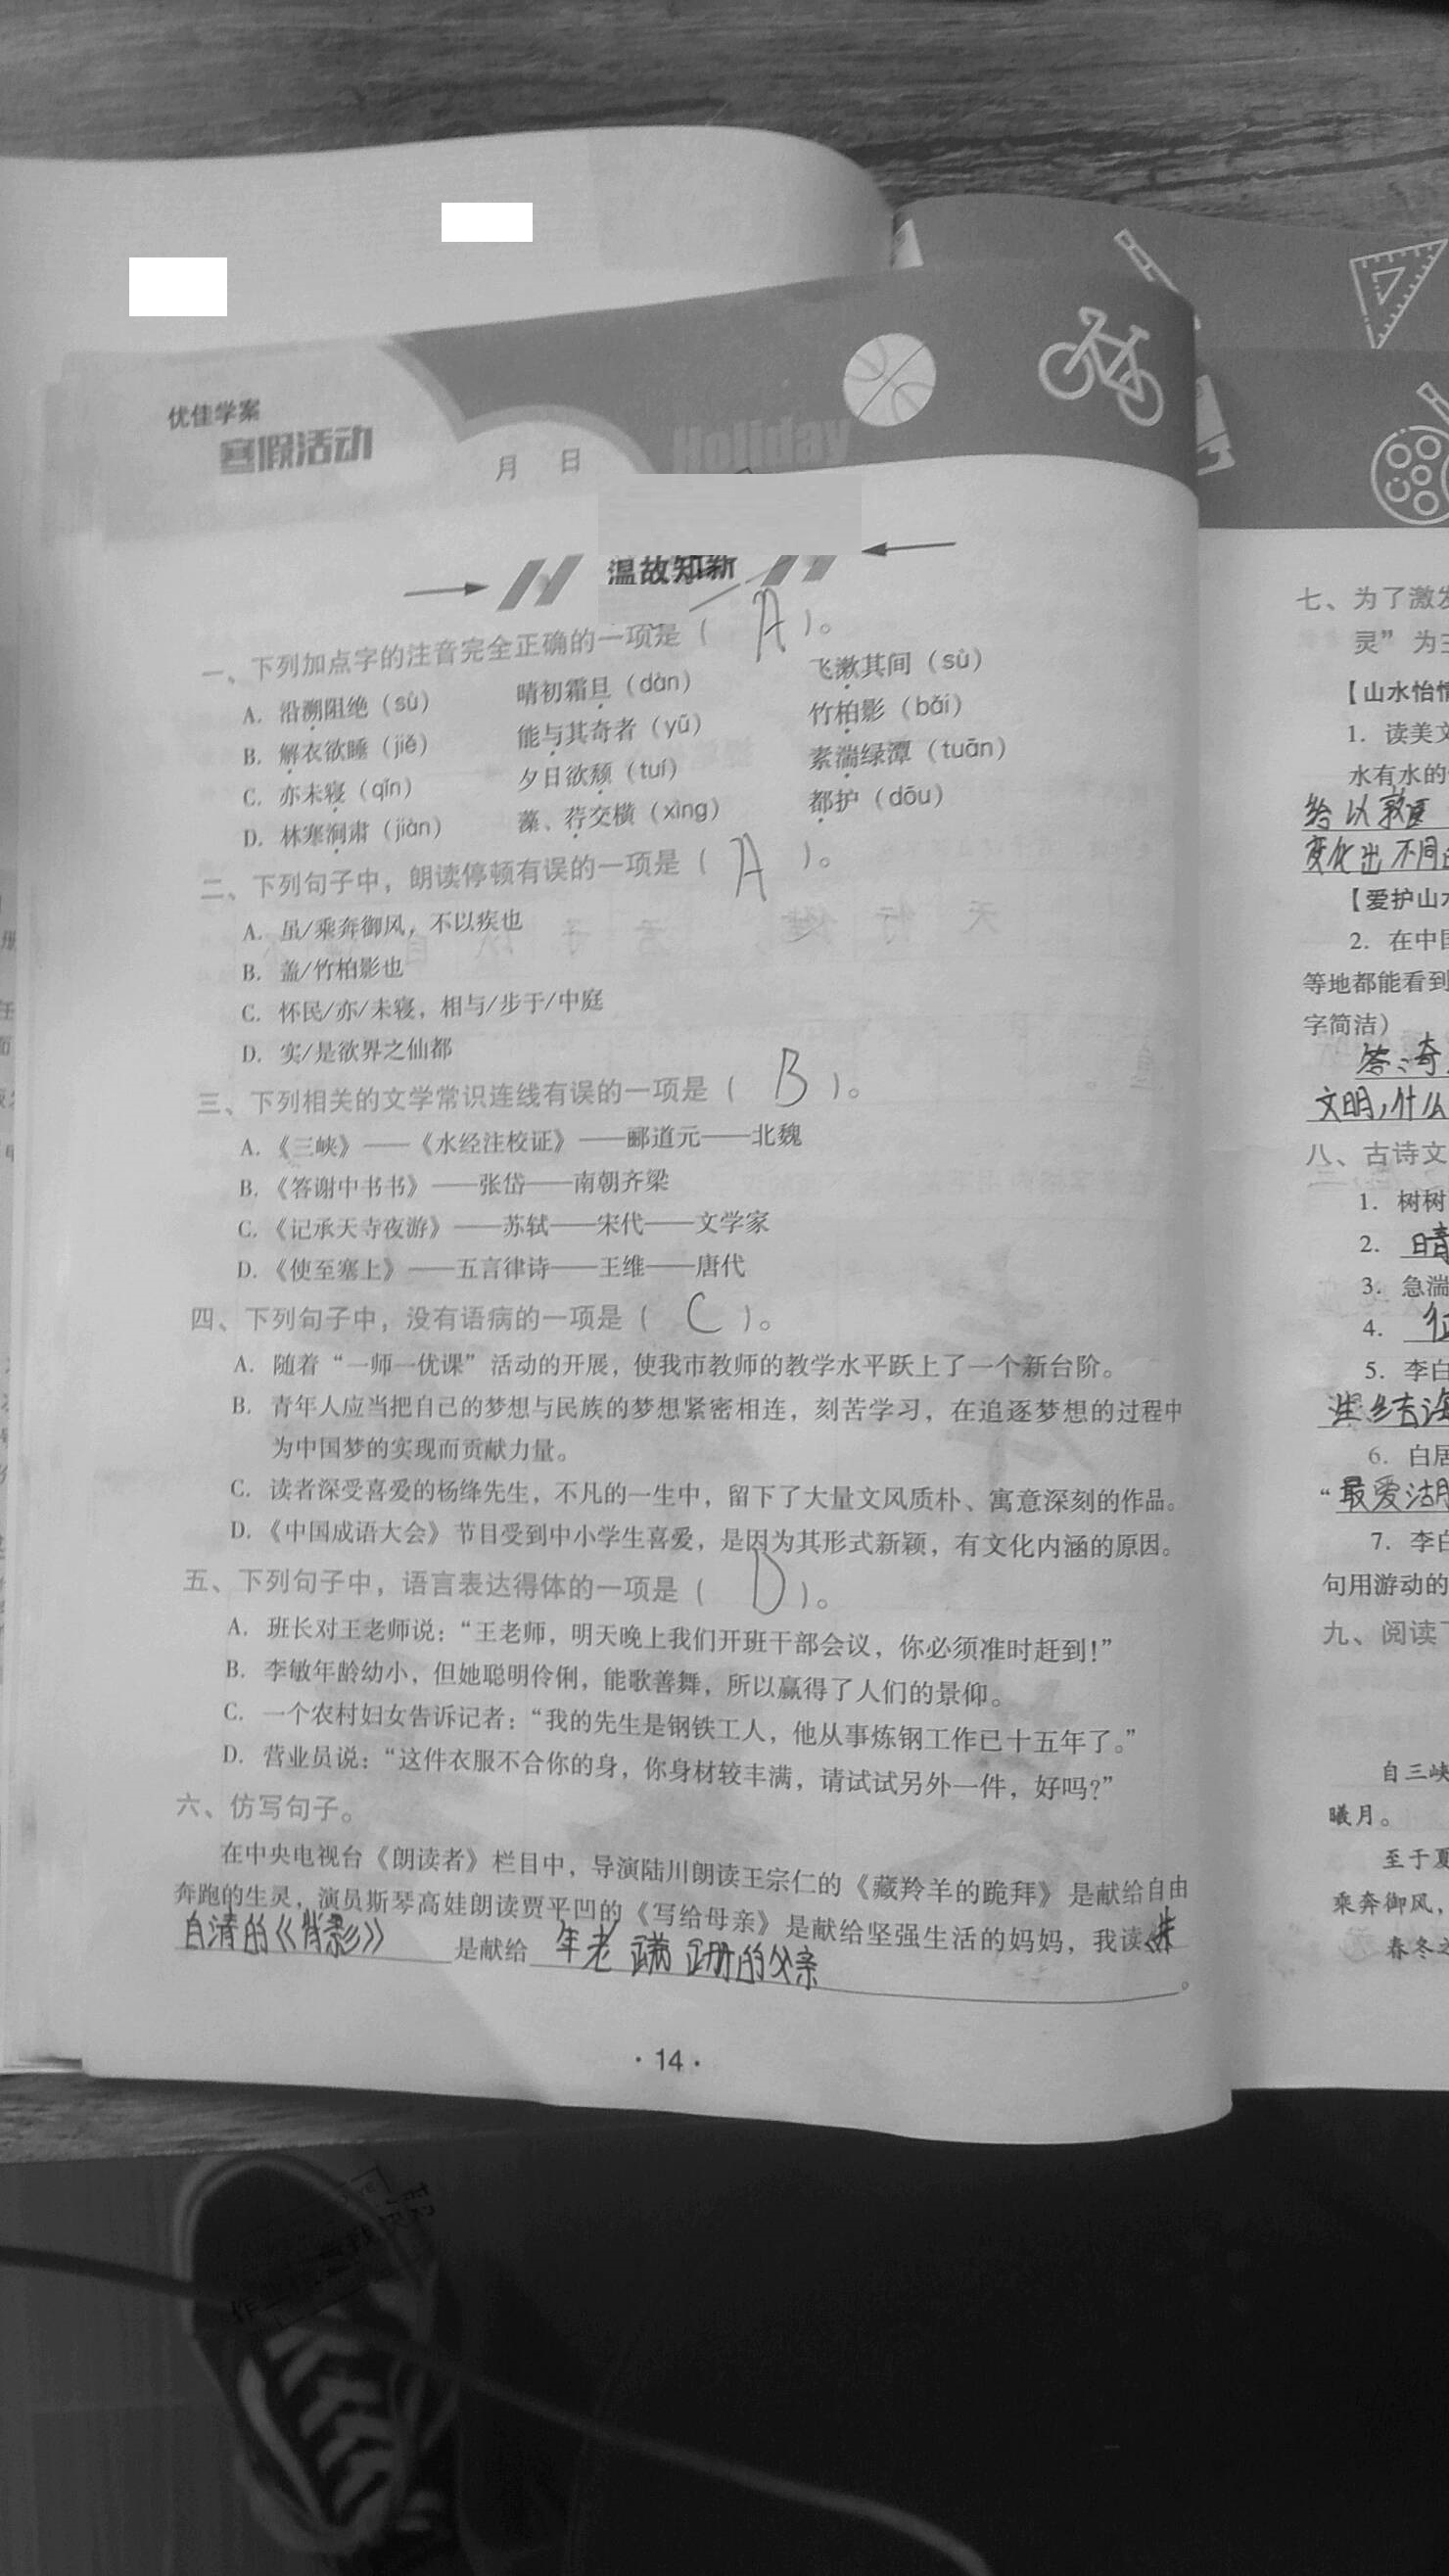 优佳学案
寒假活动
月 日
Holiday
温故知新
一、下列加点字的注音完全正确的一项是（ A ）。
A. 沿溯阻绝（sù） 晴初霜旦（dàn） 飞漱其间（sù）
B. 解衣欲睡（jiě） 能与其奇者（yǔ） 竹柏影（bǎi）
C. 亦未寝（qǐn） 夕日欲颓（tuí） 素湍绿潭（tuān）
D. 林寒涧肃（jiàn） 藻、荇交横（xìng） 都护（dōu）
二、下列句子中，朗读停顿有误的一项是（ A ）。
A. 虽/乘奔御风，不以疾也
B. 盖/竹柏影也
C. 怀民/亦/未寝，相与/步于/中庭
D. 实/是欲界之仙都
三、下列相关的文学常识连线有误的一项是（ B ）。
A.《三峡》——《水经注校证》——郦道元——北魏
B.《答谢中书书》——张岱——南朝齐梁
C.《记承天寺夜游》——苏轼——宋代——文学家
D.《使至塞上》——五言律诗——王维——唐代
四、下列句子中，没有语病的一项是（ C ）。
A. 随着“一师一优课”活动的开展，使我市教师的教学水平跃上了一个新台阶。
B. 青年人应当把自己的梦想与民族的梦想紧密相连，刻苦学习，在追逐梦想的过程中
为中国梦的实现而贡献力量。
C. 读者深受喜爱的杨绛先生，不凡的一生中，留下了大量文风质朴、寓意深刻的作品。
D.《中国成语大会》节目受到中小学生喜爱，是因为其形式新颖，有文化内涵的原因。
五、下列句子中，语言表达得体的一项是（ D ）。
A. 班长对王老师说：“王老师，明天晚上我们开班干部会议，你必须准时赶到！”
B. 李敏年龄幼小，但她聪明伶俐，能歌善舞，所以赢得了人们的景仰。
C. 一个农村妇女告诉记者：“我的先生是钢铁工人，他从事炼钢工作已十五年了。”
D. 营业员说：“这件衣服不合你的身，你身材较丰满，请试试另外一件，好吗？”
六、仿写句子。
在中央电视台《朗读者》栏目中，导演陆川朗读王宗仁的《藏羚羊的跪拜》是献给自由
奔跑的生灵，演员斯琴高娃朗读贾平凹的《写给母亲》是献给坚强生活的妈妈，我读朱
自清的《背影》 是献给 年老 的父亲 。
·14·
七、为了激发
灵”为主
【山水怡情
1. 读美文
水有水的
给以
变化出不同
【爱护山水
2. 在中国
等地都能看到
字简洁）
答：奇
文明，什么
八、古诗文
1. 树树
2. 晴
3. 急湍
4. 征
5. 李白
6. 白居
“最爱湖
7. 李白
句用游动的
九、阅读
自三峡
曦月。
至于夏
乘奔御风，
春冬之